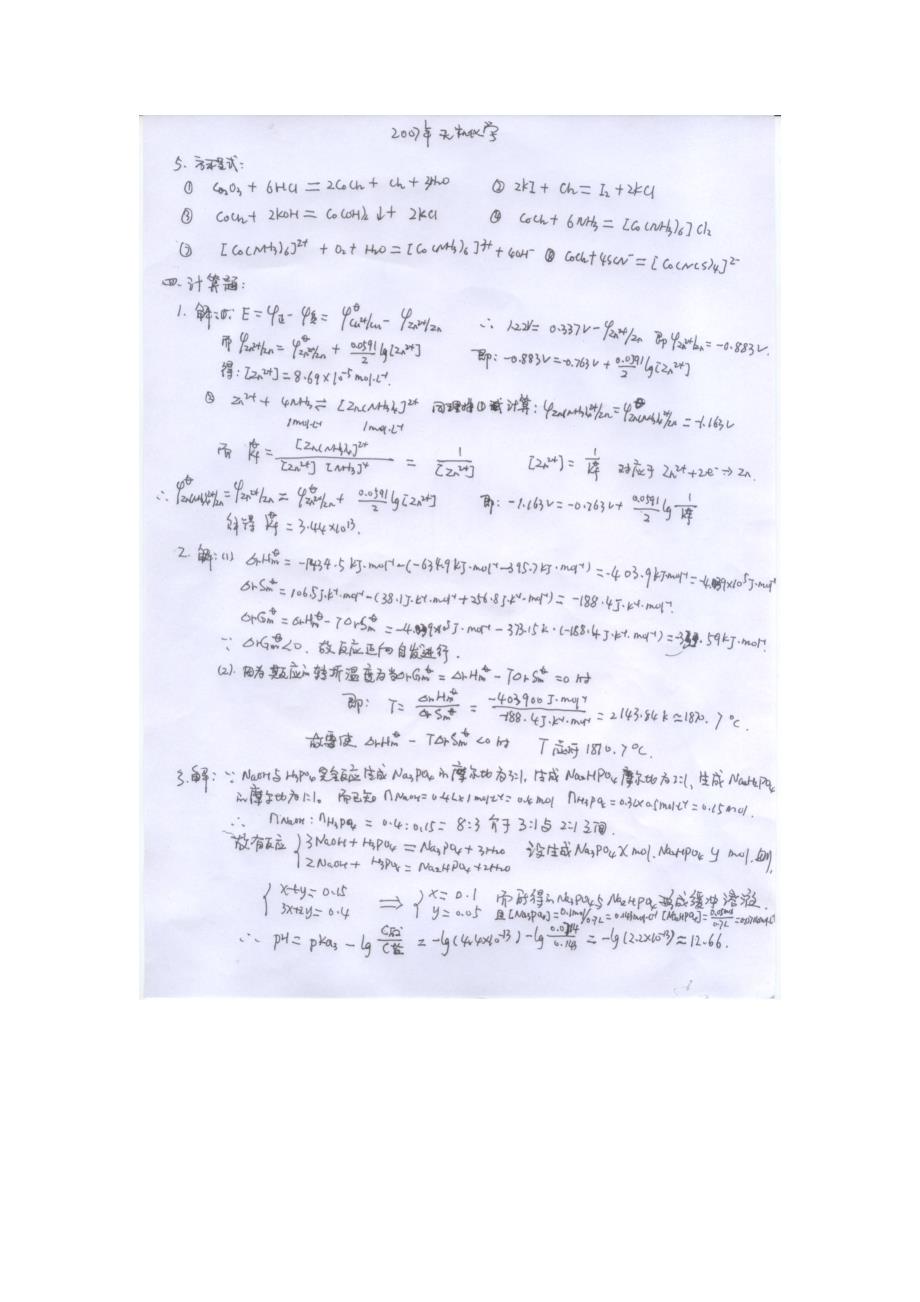 2007年无机化学
5. 方程式:
① Co2O3 + 6HCl = 2CoCl2 + Cl2 + 3H2O ② 2KI + Cl2 = I2 + 2KCl
③ CoCl2 + 2KOH = Co(OH)2↓ + 2KCl ④ CoCl2 + 6NH3 = [Co(NH3)6]Cl2
[Co(NH3)6]²⁺ + O2 + H2O = [Co(NH3)6]³⁺ + 4OH⁻ CoCl2 + 4SCN⁻ = [Co(NCS)4]²⁻
四. 计算题:
1. 解: ①∵ E = φ正 - φ负 = φ^θ Cu²⁺/Cu - φ Zn²⁺/Zn ∴ 1.22V = 0.337V - φ Zn²⁺/Zn 即 φ Zn²⁺/Zn = -0.883V.
而 φ Zn²⁺/Zn = φ^θ Zn²⁺/Zn + 0.0591/2 lg[Zn²⁺] 即: -0.883V = -0.763V + 0.0591/2 lg[Zn²⁺]
得: [Zn²⁺] = 8.69×10⁻⁵ mol·L⁻¹.
② Zn²⁺ + 4NH3 ⇌ [Zn(NH3)4]²⁺ 同理将①式计算: φ Zn(NH3)4²⁺/Zn = φ^θ Zn(NH3)4²⁺/Zn = -1.163V
1mol·L⁻¹ 1mol·L⁻¹
而 K^θf = [Zn(NH3)4]²⁺ / [Zn²⁺][NH3]⁴ = 1/[Zn²⁺] [Zn²⁺] = 1/K^θf 对应于 Zn²⁺ + 2e⁻ → Zn.
∴ φ^θ Zn(NH3)4²⁺/Zn = φ Zn²⁺/Zn = φ^θ Zn²⁺/Zn + 0.0591/2 lg[Zn²⁺] 即: -1.163V = -0.763V + 0.0591/2 lg 1/K^θf
解得 K^θf = 3.44×10¹³.
2. 解: (1) ΔrHm^θ = -1434.5 kJ·mol⁻¹ - (-634.9 kJ·mol⁻¹ - 395.7 kJ·mol⁻¹) = -403.9 kJ·mol⁻¹ = -4.039×10⁵ J·mol⁻¹
ΔrSm^θ = 106.5 J·K⁻¹·mol⁻¹ - (38.1 J·K⁻¹·mol⁻¹ + 256.8 J·K⁻¹·mol⁻¹) = -188.4 J·K⁻¹·mol⁻¹.
ΔrGm^θ = ΔrHm^θ - TΔrSm^θ = -4.039×10⁵ J·mol⁻¹ - 373.15K·(-188.4 J·K⁻¹·mol⁻¹) = .59 kJ·mol⁻¹
∵ ΔrGm^θ < 0. 故反应正向自发进行.
(2). 因为其反应的转折温度为当ΔrGm^θ = ΔrHm^θ - TΔrSm^θ = 0 时
即: T = ΔrHm^θ/ΔrSm^θ = -403900 J·mol⁻¹ / -188.4 J·K⁻¹·mol⁻¹ = 2143.84K ≈ 1870.7℃.
故要使 ΔrHm^θ - TΔrSm^θ < 0 时 T 应 1870.7℃.
3. 解: ∵ NaOH与H3PO4完全反应生成Na3PO4的摩尔比为3:1, 生成Na2HPO4摩尔比为2:1, 生成NaH2PO4
的摩尔比为1:1。 而已知 nNaOH = 0.4L×1mol·L⁻¹ = 0.4mol nH3PO4 = 0.3L×0.5mol·L⁻¹ = 0.15mol.
∴ nNaOH : nH3PO4 = 0.4 : 0.15 = 8:3 介于 3:1 与 2:1 之间.
故有反应 { 3NaOH + H3PO4 = Na3PO4 + 3H2O 设生成Na3PO4 X mol. Na2HPO4 y mol. 则,
2NaOH + H3PO4 = Na2HPO4 + 2H2O
{ x+y = 0.15 ⟹ { x = 0.1 而所得的Na3PO4与Na2HPO4 成缓冲溶液.
3x+2y = 0.4 y = 0.05 且[Na3PO4] = 0.1mol/0.7L = 0.143mol·L⁻¹ [Na2HPO4] = 0.05mol/0.7L
∴ pH = pKa3 - lg C酸/C盐 = -lg(4.4×10⁻¹³) - lg 0.0714/0.143 = -lg(2.2×10⁻¹³) ≈ 12.66.